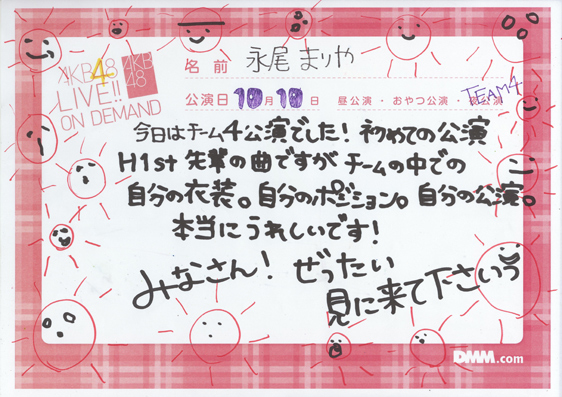 AKB48
LIVE!!
ON DEMAND
AKB
48
名前 永尾まりや
公演日 10月10日 昼公演・おやつ公演・夜公演
TEAM4
今日はチーム4公演でした! 初めての公演
H1st 先輩の曲ですが チームの中での
自分の衣装。自分のポジション。自分の公演。
本当にうれしいです!
みなさん! ぜったい
見に来て下さいっ
DMM.com